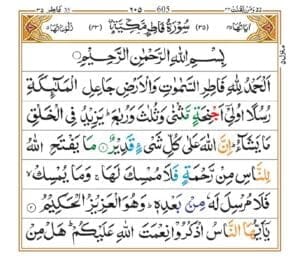 فاطر ٣٥ ٦٠٥ 605
سُوْرَةُ فَاطِرٍ مَّكِّيَّةٌ
بِسْمِ اللّٰهِ الرَّحْمٰنِ الرَّحِيْمِ
اَلْحَمْدُ لِلّٰهِ فَاطِرِ السَّمٰوٰتِ وَالْاَرْضِ جَاعِلِ الْمَلٰٓئِكَةِ
رُسُلًا اُولِيْٓ اَجْنِحَةٍ مَّثْنٰى وَثُلٰثَ وَرُبٰعَ ؕ يَزِيْدُ فِي الْخَلْقِ
مَا يَشَآءُ ؕ اِنَّ اللّٰهَ عَلٰى كُلِّ شَيْءٍ قَدِيْرٌ ۝۱ مَا يَفْتَحِ اللّٰهُ
لِلنَّاسِ مِنْ رَّحْمَةٍ فَلَا مُمْسِكَ لَهَا ۚ وَمَا يُمْسِكْ ۙ
فَلَا مُرْسِلَ لَهٗ مِنْۢ بَعْدِهٖ ؕ وَهُوَ الْعَزِيْزُ الْحَكِيْمُ ۝۲
يٰٓاَيُّهَا النَّاسُ اذْكُرُوْا نِعْمَتَ اللّٰهِ عَلَيْكُمْ ؕ هَلْ مِنْ